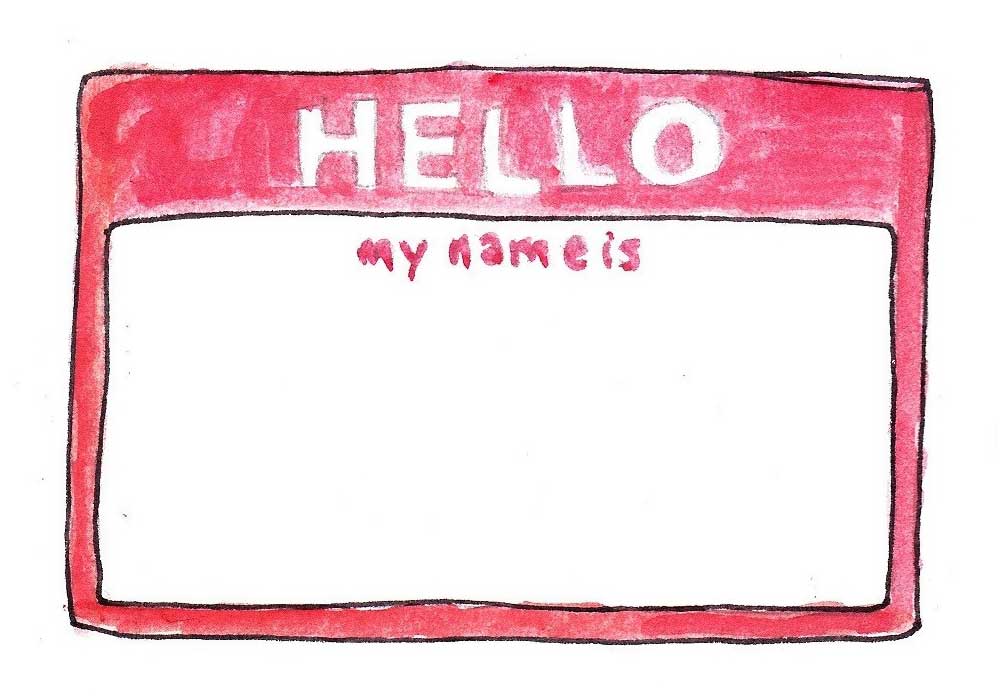 HELLO
my name is